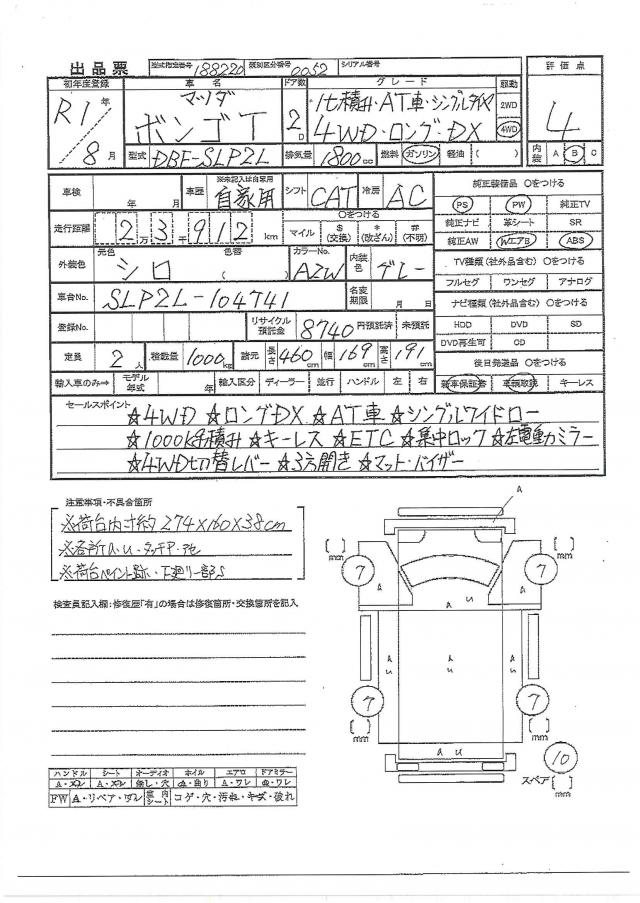 出品票 型式指定番号 188220 類別区分番号 0052 シリアル番号
初年度登録 車名 ドア数 グレード 駆動 評価点
R1年 8月 マツダ ボンゴT 2D 1t積・AT車・シングルタイヤ 4WD・ロング・DX 2WD 4WD 4
型式 DBF-SLP2L 排気量 1800cc 燃料 ガソリン 軽油 ( ) 内装 A B C
車検 年 月 車歴 ※未記入は自家用 自家用 シフト CAT 冷房 AC
純正装備品 ○をつける
走行距離 2万3千912km ○をつける マイル $(交換) *(改ざん) #(不明)
PS PW 純正TV
純正ナビ 革シート SR
純正AW WエアB ABS
外装色 元色 シロ 色替 ( ) カラーNo. A2W 内装色 グレー
TV種類(社外品含む) ○をつける
フルセグ ワンセグ アナログ
車台No. SLP2L-104741 名変期限 月 日
ナビ種類(社外品含む) ○をつける
登録No. リサイクル預託金 8740円預託済 未預託
HDD DVD SD
DVD再生可 CD
定員 2人 積載量 1000kg 諸元 長さ 460 幅 169 高さ 191
後日発送品 ○をつける
輸入車のみ⇒ モデル年式 年 輸入区分 ディーラー 並行 ハンドル 左 右
新車保証書 車輌取説 キーレス
セールスポイント
☆4WD ☆ロングDX ☆AT車 ☆シングルワイドロー
☆1000kg積 ☆キーレス ☆ETC ☆集中ロック ☆左電動ミラー
☆4WD切替レバー ☆3方開き ☆マット・バイザー
注意事項・不具合箇所
※荷台内寸約 274×160×38cm
※各所A・U・タッチP・
※荷台ペイント跡・下廻り一部S
検査員記入欄:修復歴「有」の場合は修復箇所・交換箇所を記入
A
[ ] mm 7 7 [ ] mm
A A U A
A U A U A U
7 7
[ ] mm [ ] mm
A U
10
スペア [ ] mm
ハンドル シート オーディオ ホイル エアロ ドアミラー
A・スレ A・スレ 無し・穴 曲り A・ワレ ワレ
FW A・リペア・ダレ 室内シート コゲ・穴・汚れ・キズ・破れ